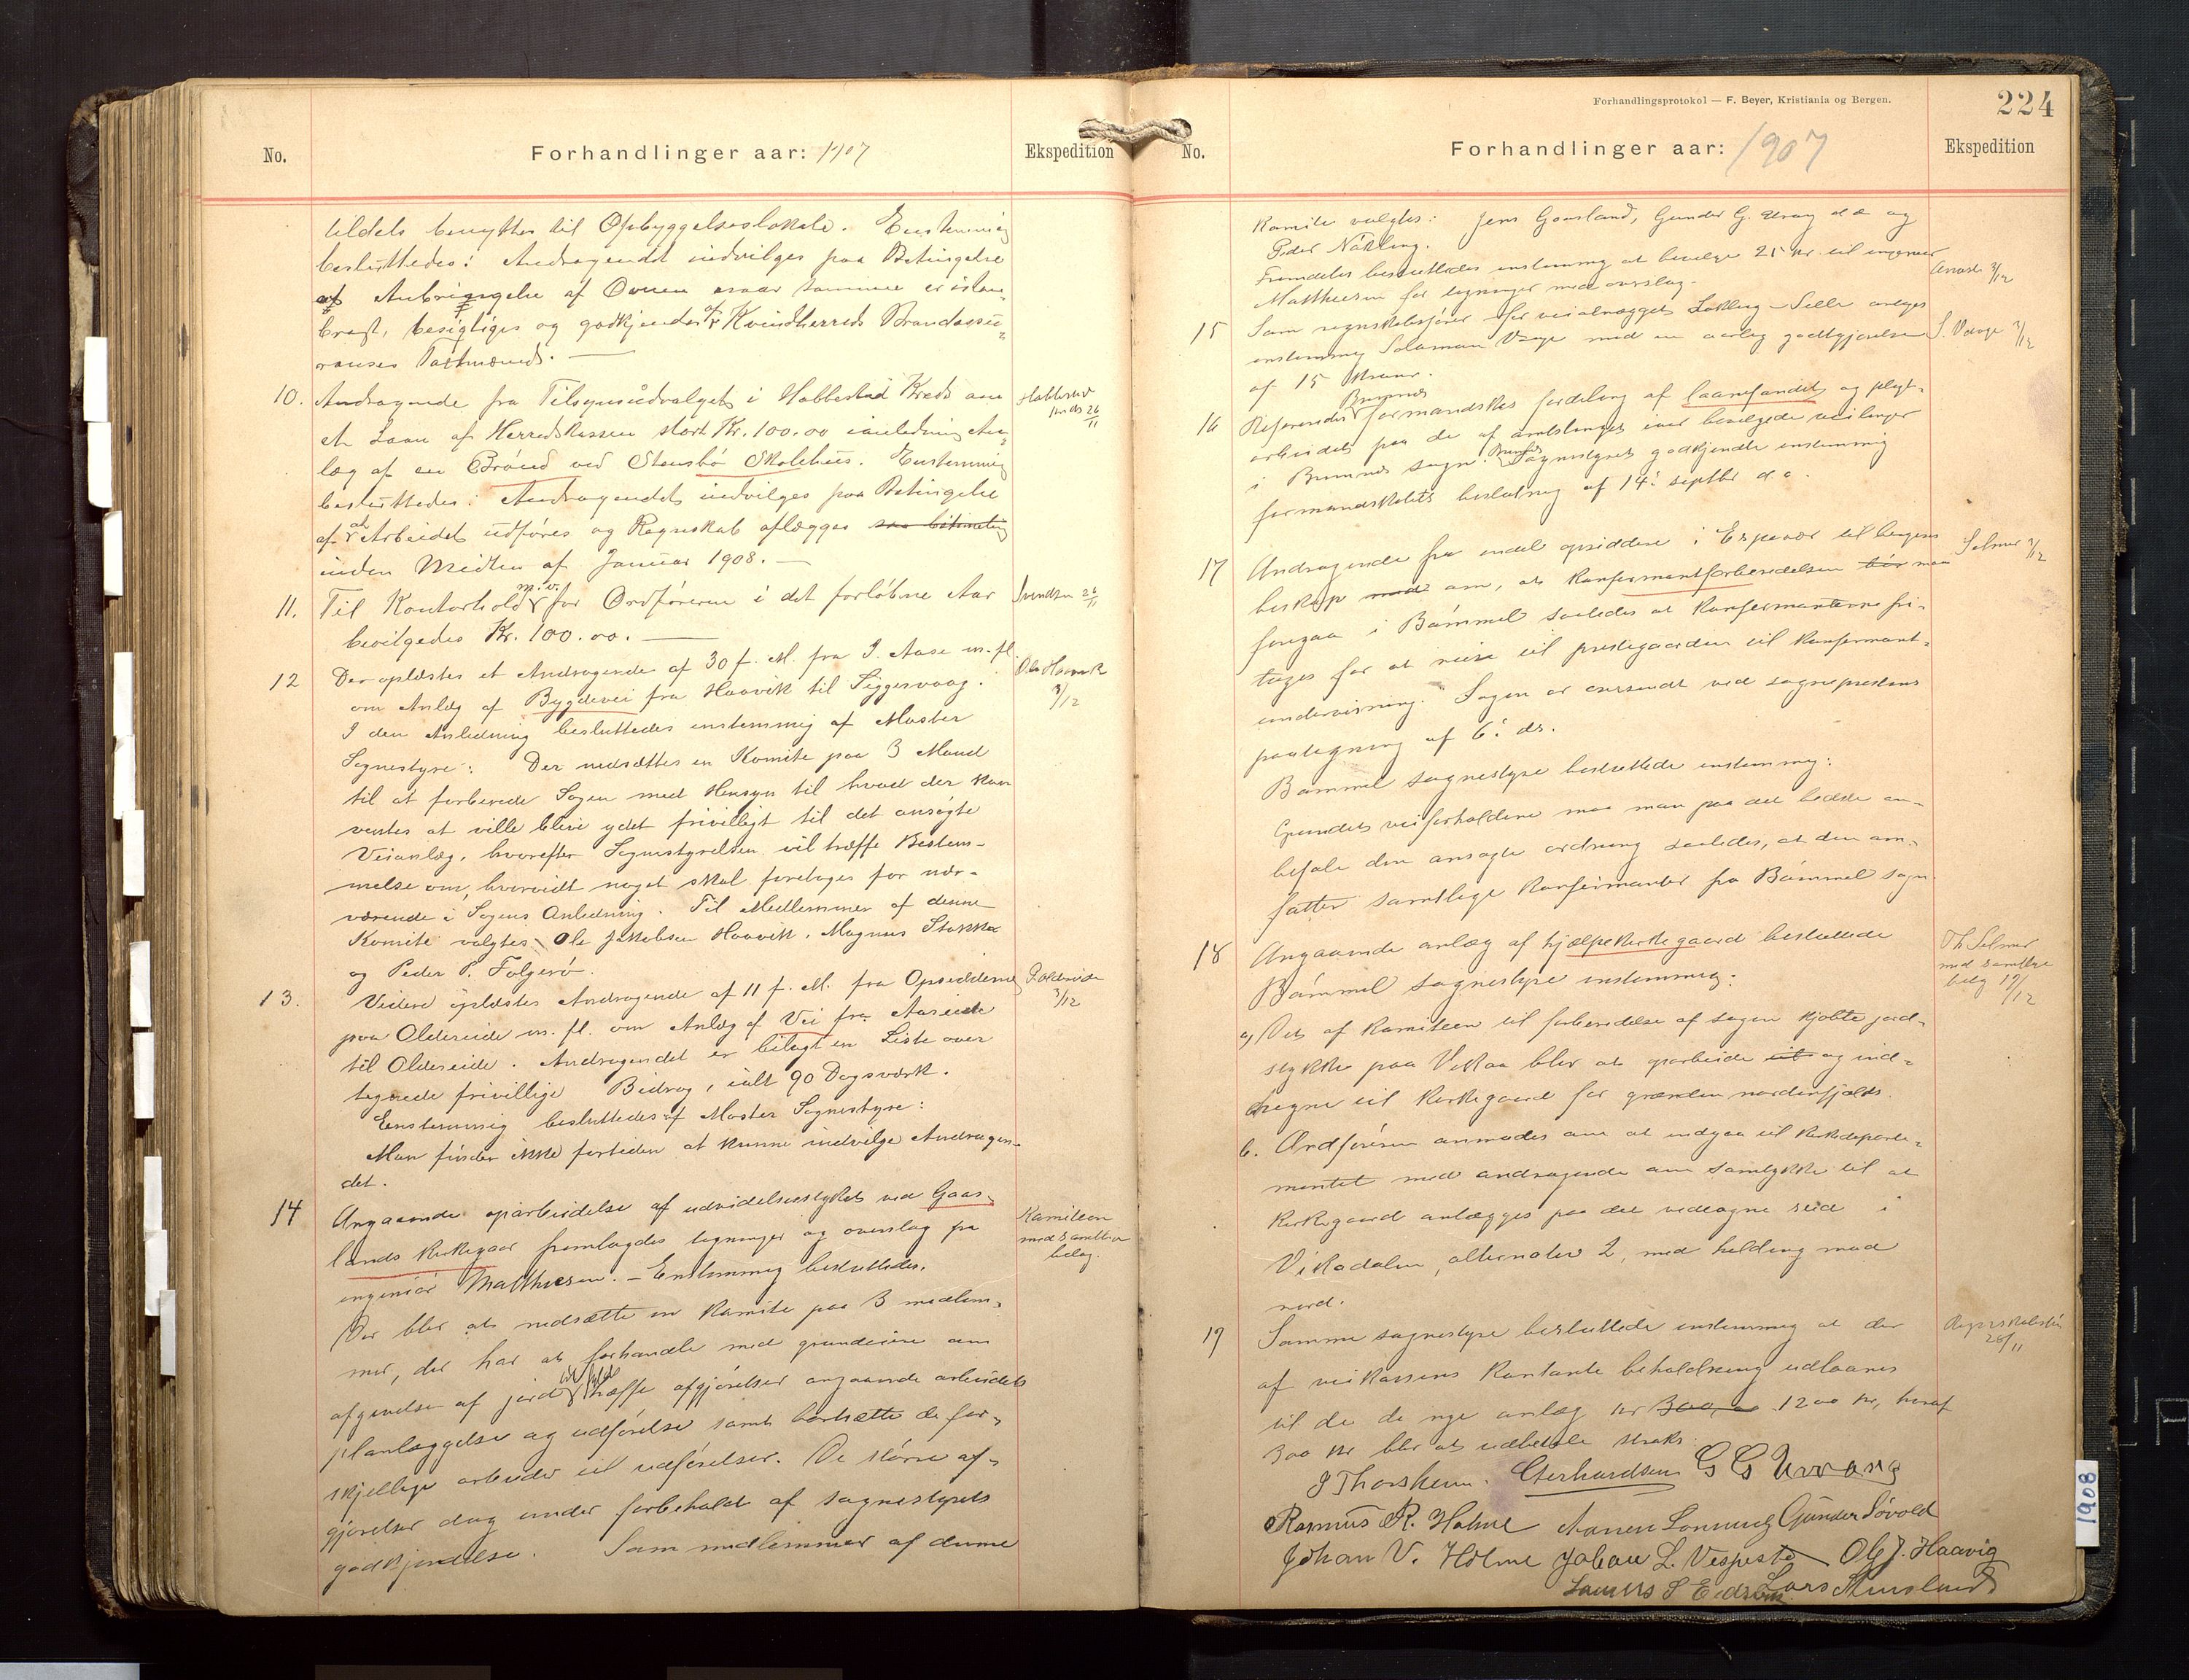 No.
Forhandlinger aar: 1907
Ekspedition
tildels benyttes til Opbyggelseslokale. Enstemmig
besluttedes: Andragendet indvilges paa Betingelse
af Anbringelse af Ovnen naar samme er istan-
bragt, besigtiges og godkjendes af Kvindherreds Brandassu-
ranses Taxtmænd. —
10. Andragende fra Tilsynsudvalget i Habbestad Kreds om
Habbestad Kreds 26/11
et Laan af Herredskassen stort Kr. 100.00 i anledning An-
læg af en Brönd ved Stensbö Skolehus. Enstemmig
besluttedes: Andragendet indvilges paa Betingelse
af at Arbeidet udföres og Regnskab aflægges
inden Midten af Januar 1908. —
11. Til Kontorhold m.v. for Ordföreren i det forlöbne Aar
Svendsen 26/11
bevilgedes Kr. 100.00. —
12 Der oplæstes et Andragende af 30 f. M. fra I. Aase m.fl.
Ole Haavik 3/12
om Anlæg af Bygdevei fra Haavik til Siggesvaag.
I den Anledning besluttedes enstemmig af Moster
Sognestyre: Der nedsættes en Komite paa 3 Mand
til at forberede Sagen med Hensyn til hvad der kan
ventes at ville blive ydet frivilligt til det ansögte
Veianlæg, hvorefter Sognestyrelsen vil træffe Bestem-
melse om, hvorvidt noget skal foretages for nær-
værende i Sagens Anledning. Til Medlemmer af denne
Komite valgtes: Ole Jakobsen Haavik, Magnus Stokka
og Peder P. Folgerö.
13. Videre oplæstes Andragende af 11 f. M. fra Opsidderne
3/12
paa Oldereide m. fl. om Anlæg af Vei fra Aareide
til Oldereide. Andragendet er bilagt en Liste over
tegnede frivillige Bidrag, ialt 90 Dagsværk.
Enstemmig besluttedes af Moster Sognestyre:
Man finder ikke fortiden at kunne indvilge Andragen-
det.
14 Angaaende oparbeidelse af udvidelsesstykket ved Gaas-
Komiteen med samtlige bilag.
lands Kirkegaar fremlagdes tegninger og overslag fra
ingeniör Matthiesen. — Enstemmig besluttedes:
Der blir at nedsætte en Komite paa 3 medlem-
mer, der har at forhandle med grundeiere om
afgivelse af jord til fyld træffe afgjörelser angaaende arbeidets
planlæggelse og udförelse samt bortsætte de for-
skjellige arbeider til udförelser. De större af-
gjörelser dog under forbehold af sognestyrets
godkjendelse. Som medlemmer af denne
Forhandlingsprotokol — F. Beyer, Kristiania og Bergen.
224
No.
Forhandlinger aar: 1907
Ekspedition
Komite valgtes: Jens Gaasland, Gunder G. Urang d.æ og
Peder Nökling.
Fremdeles besluttedes enstemmig at bevilge 25 kr. til ingeniör
3/12
Matthiesen for tegninger med overslag.
15 Som regnskabsförer for veianlægget Løkling - Selle antages
S. Vaage 3/12
enstemmig Solomon Vaage med en aarlig godtgjörelse
af 15 Kroner.
16 Refereredes Bremnes formandskabs fordeling af laanefondet og pligt-
arbeidet paa de af amtstinget iaar bevilgede veilinger
i Bremnes sogn. Bremnes Sognestyret godkjendte enstemmig
formandskabets beslutning af 14. septbr d.a.
17 Andragende fra endel opsiddere i Espevær til
Selmer 3/12
om, at Konfirmantforberedelsen maa
foregaa i Bömmel saaledes at Konfirmanterne fri-
tages for at reise til prestegaarden til Konfirmant-
undervisning. Sagen er oversendt ved sogneprestens
paategning af 6. ds.
Bömmel sognestyre besluttede enstemmig:
Grundet veiforholdene maa man paa det bedste an-
befale den ansögte ordning saaledes, at den om-
fatter samtlige Konfirmanter fra Bömmel sogn.
18 Angaaende anlæg af hjælpekirkegaard besluttede
Th. Selmer med samtlige bilag 17/12
Bömmel sognestyre enstemmig:
a) Det af Komiteen til forberedelse af sagen kjøbte jord-
stykke paa Vikaa blir at oparbeide og ind-
hegne til Kirkegaard for grænden nordenfjelds.
b. Ordföreren anmodes om at indgaa til Kirkedeparte-
mentet med andragende om samtykke til at
Kirkegaard anlægges paa det vedtagne sted i
Vikadalen, alternativ 2, med helding mod
nord.
19 Samme sognestyre besluttede enstemmig at der
28/11
af veikassens Kontante beholdning udlaanes
til de nye anlæg kr 300,00 1200 kr, hvoraf
300 kr blir at udbetale straks.
J Thorsheim. Gerhardsen G G Urrang
Rasmus R. Holme Aanen Lonning Gunder Sövold
Johan V. Holme Johan L. Vespestad Ole J. Haavig
Lars Stensland
1908